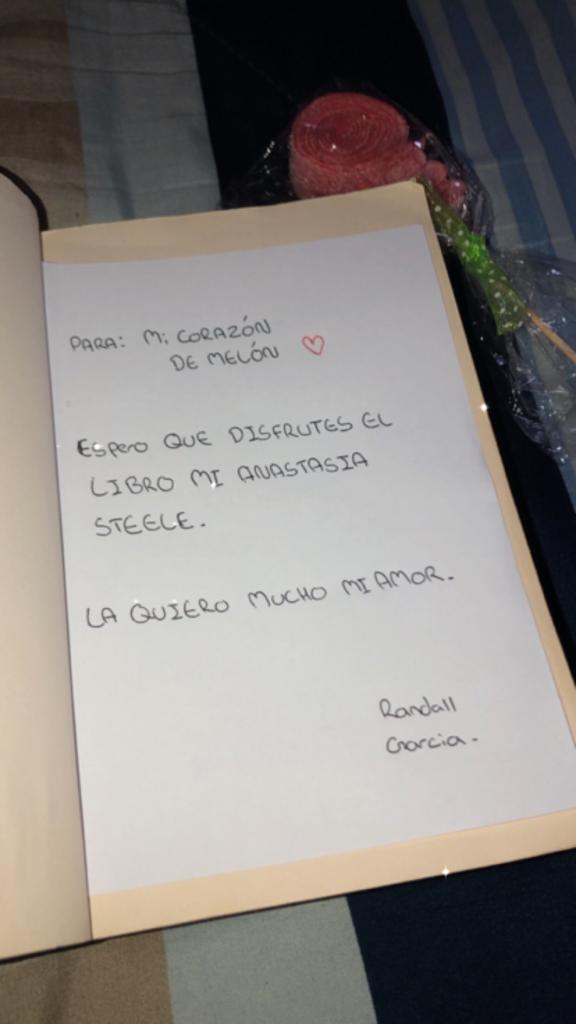 PARA: Mi CORAZÓN
DE MELÓN ♡
ESPERO QUE DISFRUTES EL
LIBRO MI ANASTASIA
STEELE.
LA QUIERO MUCHO MI AMOR.
Randall
Garcia.